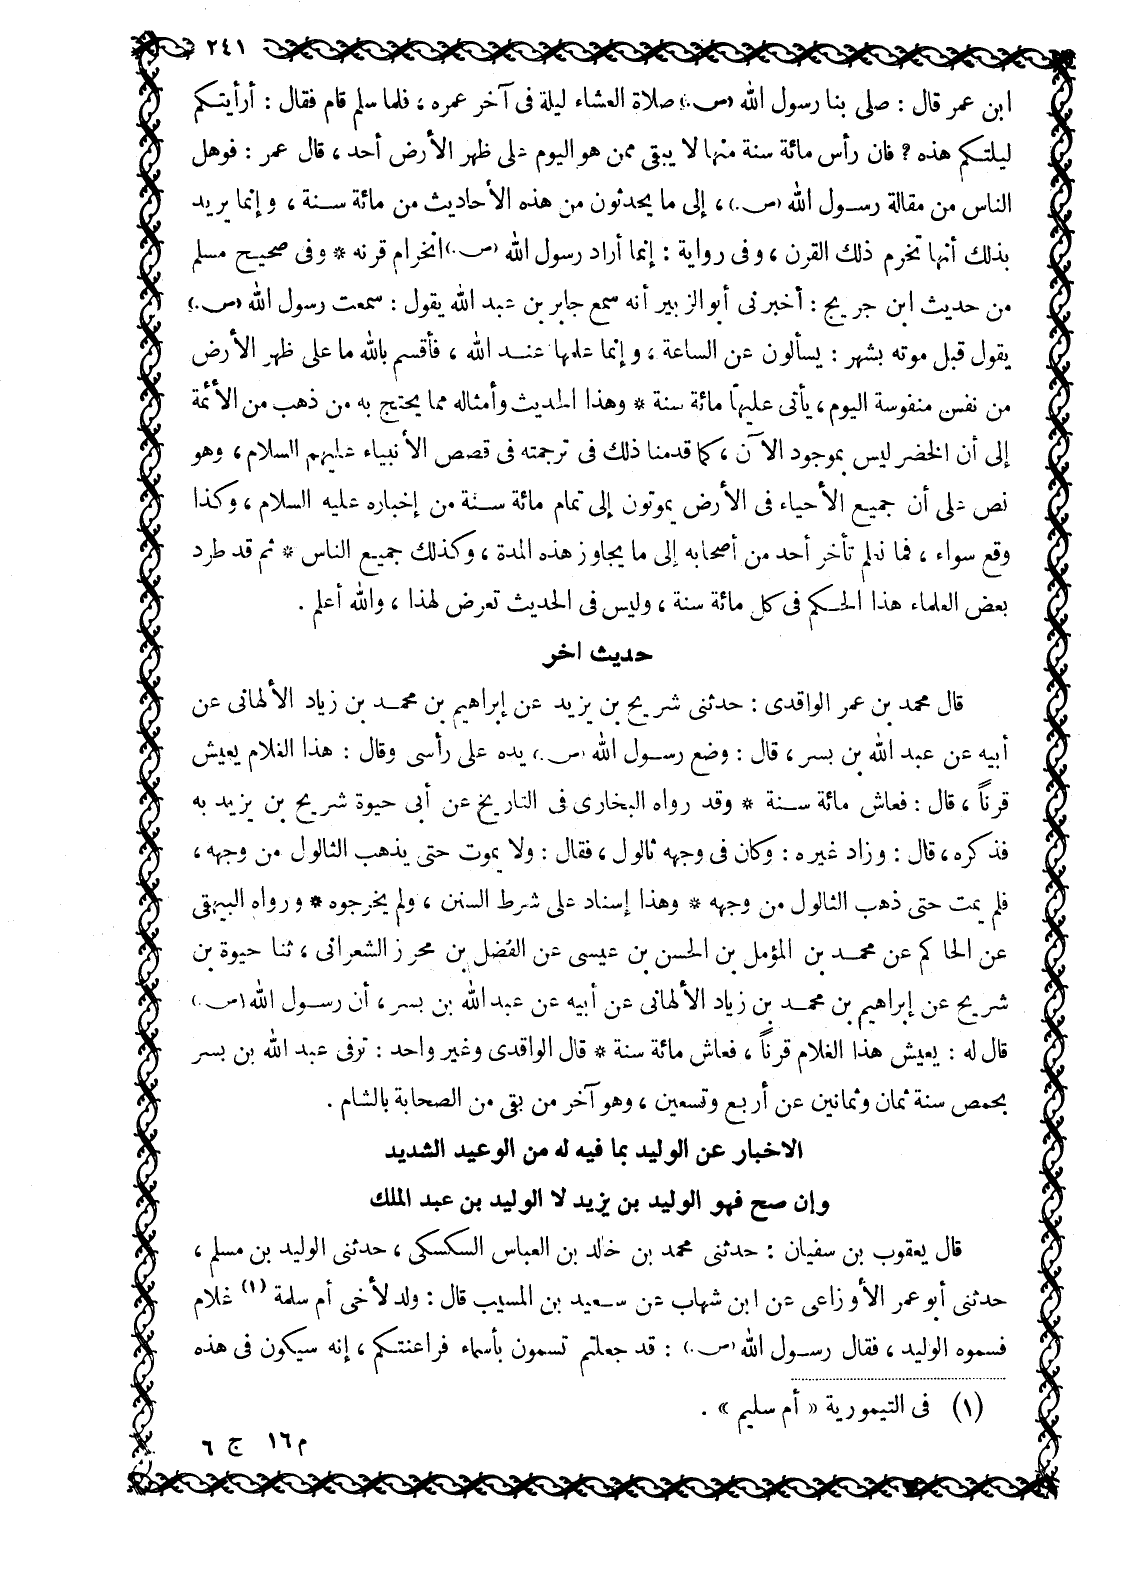 ٢٤١
ابن عمر قال : صلى بنا رسول الله (ص.) صلاة العشاء ليلة فى آخر عمره ، فلما سلم قام فقال : أرأيتكم
ليلتكم هذه ? فان رأس مائة سنة منها لا يبقى ممن هو اليوم على ظهر الأرض أحد ، قال عمر : فوهل
الناس من مقالة رسول الله (ص.) ، إلى ما يحدثون من هذه الأحاديث من مائة سنة ، وإنما يريد
بذلك أنها تخرم ذلك القرن ، وفى رواية : إنما أراد رسول الله (ص.) انخرام قرنه * وفى صحيح مسلم
من حديث ابن جريج : أخبرنى أبو الزبير أنه سمع جابر بن عبد الله يقول : سمعت رسول الله (ص.)
يقول قبل موته بشهر : يسألون عن الساعة ، وإنما علمها عند الله ، فأقسم بالله ما على ظهر الأرض
من نفس منفوسة اليوم ، يأتى عليها مائة سنة * وهذا الحديث وأمثاله مما يحتج به من ذهب من الأئمة
إلى أن الخضر ليس بموجود الآن ، كما قدمنا ذلك فى ترجمته فى قصص الأنبياء عليهم السلام ، وهو
نص على أن جميع الأحياء فى الأرض يموتون إلى تمام مائة سنة من إخباره عليه السلام ، وكذا
وقع سواء ، فما نعلم تأخر أحد من أصحابه إلى ما يجاوز هذه المدة ، وكذلك جميع الناس * ثم قد طرد
بعض العلماء هذا الحكم فى كل مائة سنة ، وليس فى الحديث تعرض لهذا ، والله أعلم .
حديث اخر
قال محمد بن عمر الواقدى : حدثنى شريح بن يزيد عن إبراهيم بن محمد بن زياد الألهانى عن
أبيه عن عبد الله بن بسر ، قال : وضع رسول الله (ص.) يده على رأسى وقال : هذا الغلام يعيش
قرناً ، قال : فعاش مائة سنة * وقد رواه البخارى فى التاريخ عن أبى حيوة شريح بن يزيد به
فذكره ، قال : وزاد غيره : وكان فى وجهه ثالول ، فقال : ولا يموت حتى يذهب الثالول من وجهه ،
فلم يمت حتى ذهب الثالول من وجهه * وهذا إسناد على شرط السنن ، ولم يخرجوه * ورواه البيهقى
عن الحاكم عن محمد بن المؤمل بن الحسن بن عيسى عن الفضل بن محرز الشعرانى ، ثنا حيوة بن
شريح عن إبراهيم بن محمد بن زياد الألهانى عن أبيه عن عبد الله بن بسر ، أن رسول الله (ص.)
قال له : يعيش هذا الغلام قرناً ، فعاش مائة سنة * قال الواقدى وغير واحد : توفى عبد الله بن بسر
بحمص سنة ثمان وثمانين عن أربع وتسعين ، وهو آخر من بقى من الصحابة بالشام .
الاخبار عن الوليد بما فيه له من الوعيد الشديد
وإن صح فهو الوليد بن يزيد لا الوليد بن عبد الملك
قال يعقوب بن سفيان : حدثنى محمد بن خالد بن العباس السكسكى ، حدثنى الوليد بن مسلم ،
حدثنى أبو عمر الأوزاعى عن ابن شهاب عن سعيد بن المسيب قال : ولد لأخى أم سلمة (١) غلام
فسموه الوليد ، فقال رسول الله (ص.) : قد جعلتم تسمون بأسماء فراعنتكم ، إنه سيكون فى هذه
(١) فى التيمورية « أم سليم » .
م ١٦ ج ٦